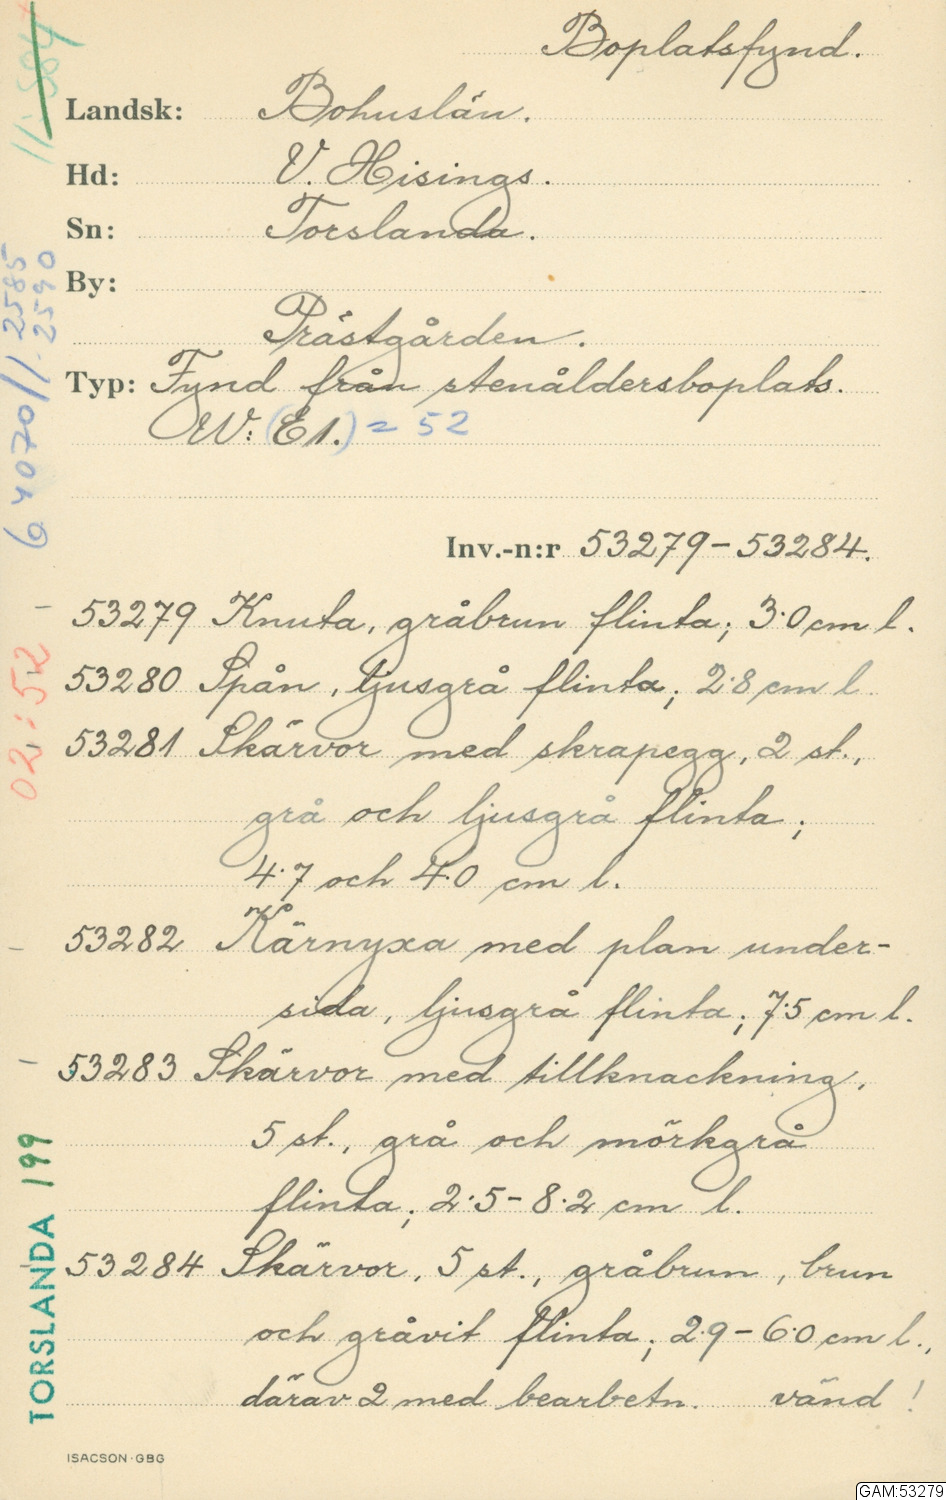 Boplatsfynd.
Landsk: Bohuslän.
Hd: V. Hisings.
Sn: Torslanda.
By:
Prästgården.
Typ: Fynd från stenåldersboplats.
W: (E1.) = 52
Inv.-n:r 53279-53284.
53279 Knuta, gråbrun flinta; 3·0 cm l.
53280 Spån, ljusgrå flinta; 2·8 cm l.
53281 Skärvor med skrapegg, 2 st.,
grå och ljusgrå flinta;
4·7 och 4·0 cm l.
53282 Kärnyxa med plan under-
sida, ljusgrå flinta; 7·5 cm l.
53283 Skärvor med tillknackning,
5 st., grå och mörkgrå
flinta; 2·5-8·2 cm l.
53284 Skärvor, 5 st., gråbrun, brun
och gråvit flinta; 2·9-6·0 cm l.,
därav 2 med bearbetn. vänd!
ISACSON·GBG
TORSLANDA 199
02,:52
64070/1.2585
1.2590
GAM:53279